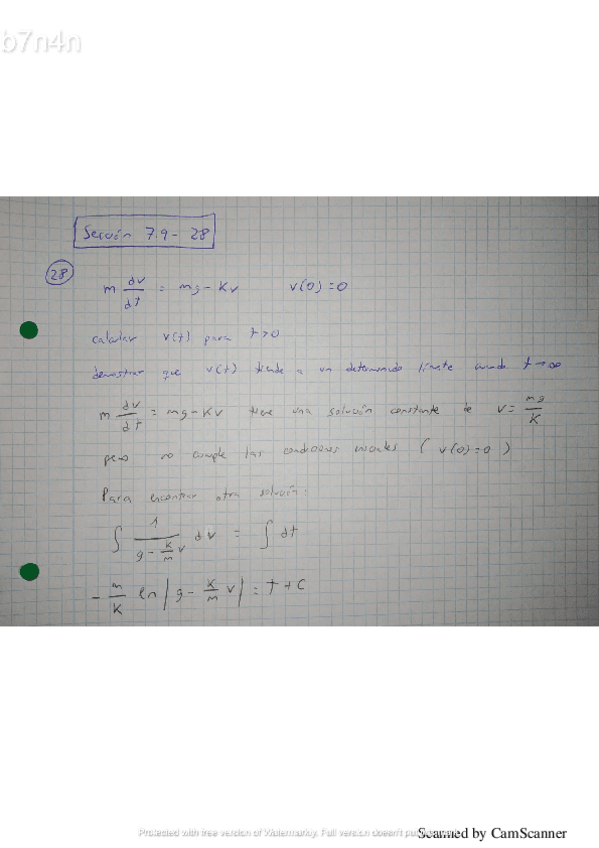 b7n4n
Sección 7.9 - 28
28
m dv/dt = mg - Kv v(0) = 0
calcular v(t) para t>0
demostrar que v(t) tiende a un determinado límite cuando t→∞
m dv/dt = mg - Kv tiene una solución constante de v = mg/K
pero no cumple las condiciones iniciales (v(0)=0)
Para encontrar otra solución:
∫ 1/(g - K/m v) dv = ∫ dt
- m/K ln|g - K/m v| = t + C
Protected with free version of Watermarkly. Full version doesn't put
Scanned by CamScanner